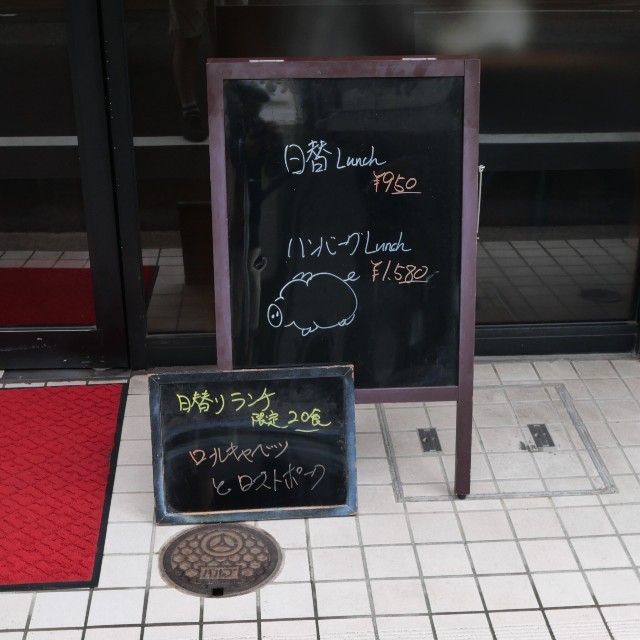 日替 Lunch
¥950
ハンバーグ Lunch
¥1.580
日替りランチ
限定 20食
ロールキャベツ
とローストポーク
バルブ